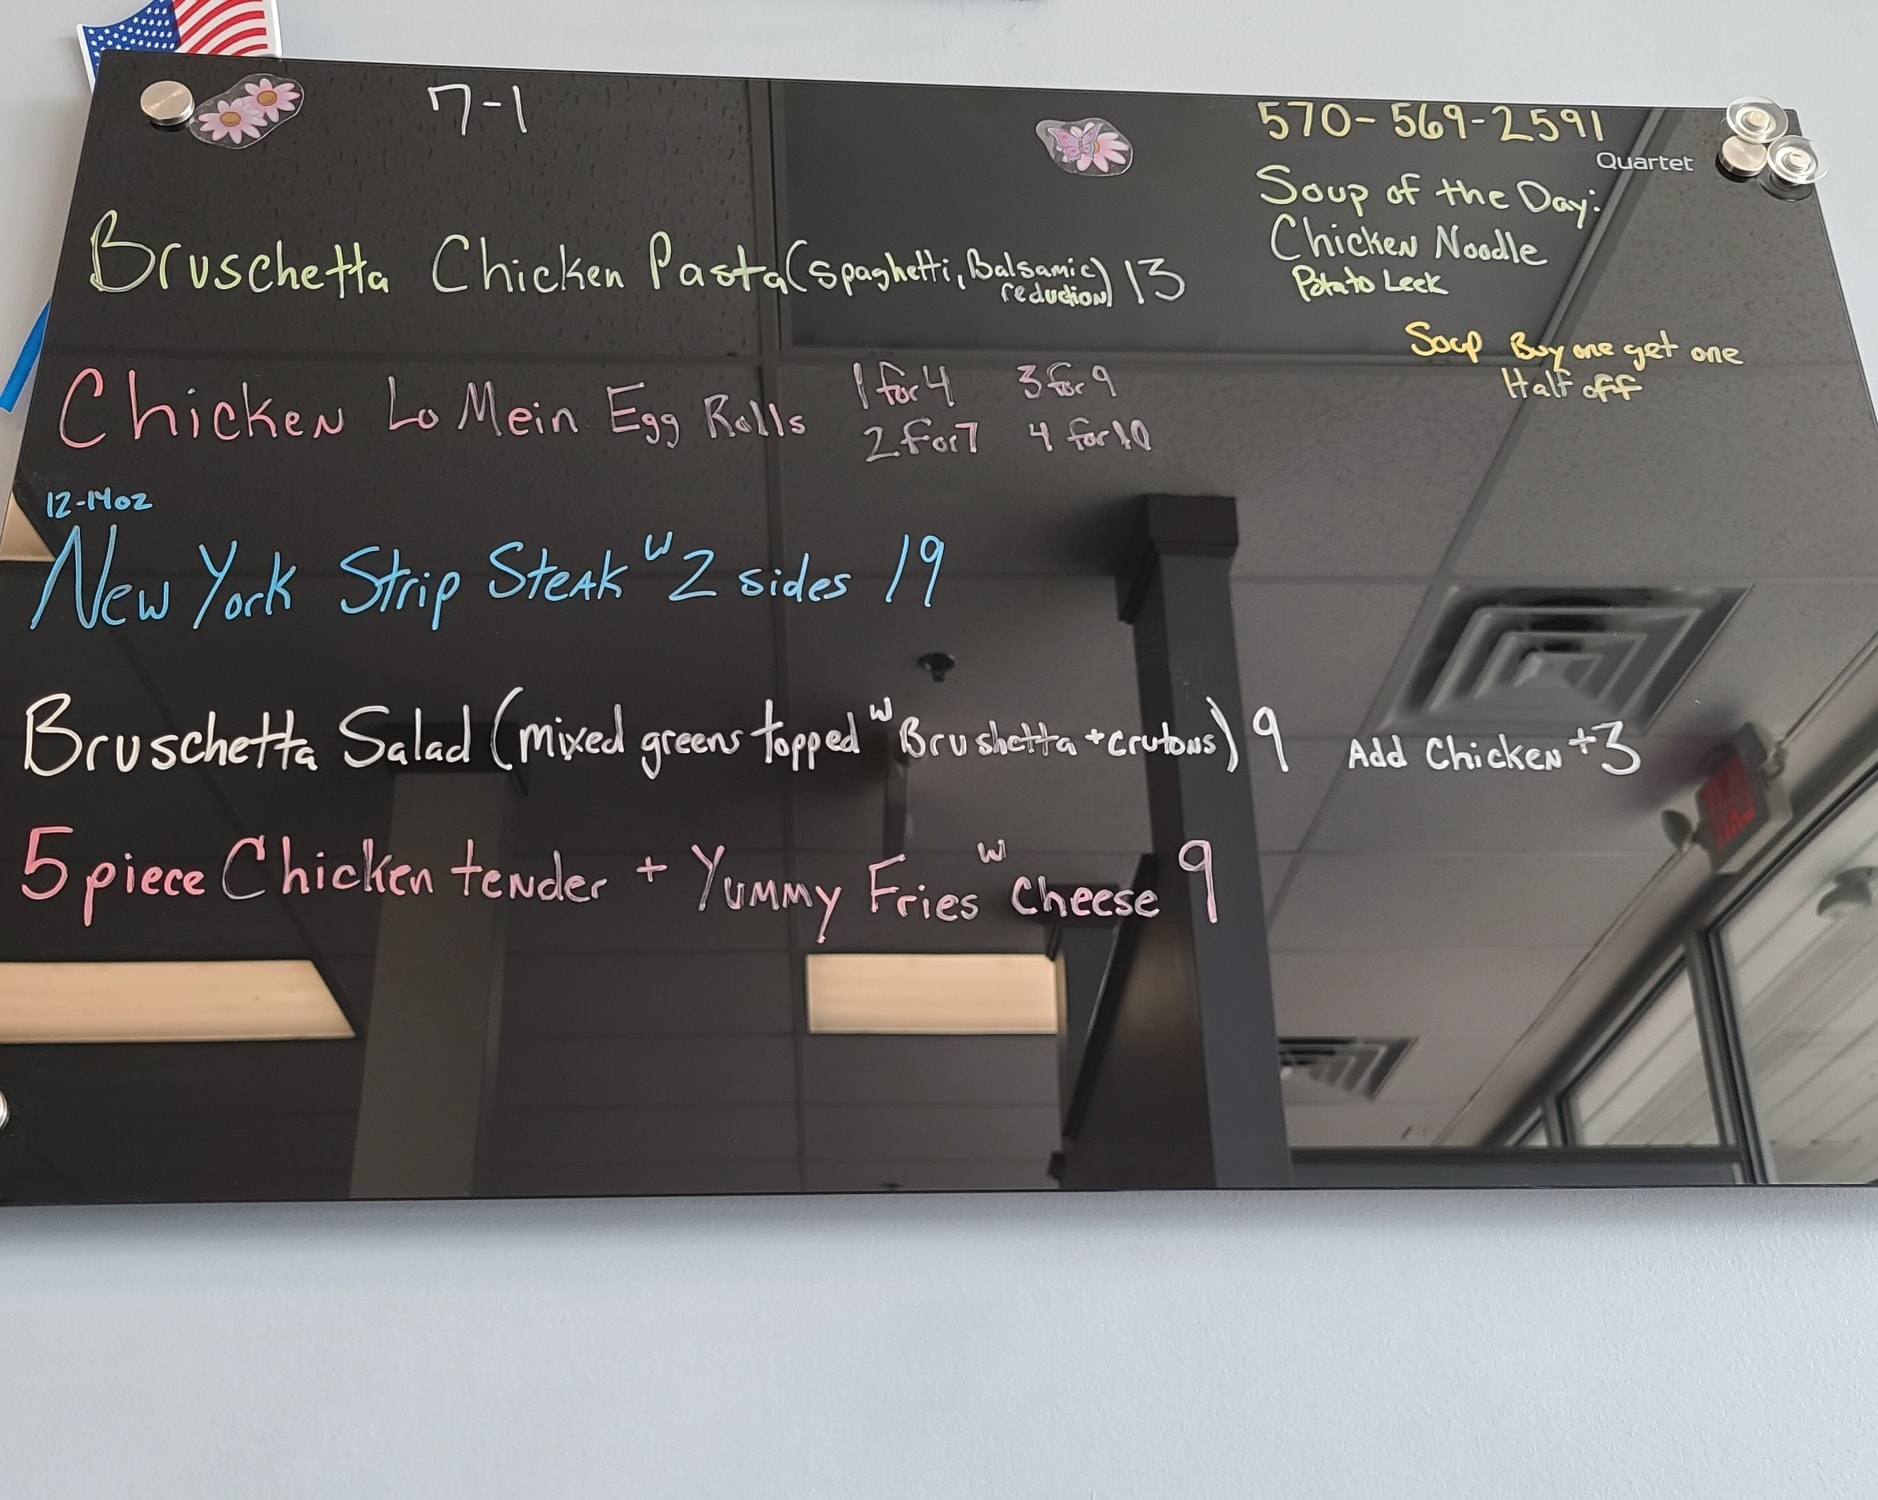 7-1
570-569-2591
Quartet
Soup of the Day:
Chicken Noodle
Potato Leek
Soup Buy one get one
Half off
Bruschetta Chicken Pasta (spaghetti, Balsamic reduction) 13
Chicken Lo Mein Egg Rolls 1 for 4 3 for 9
2 for 7 4 for 10
12-14oz
New York Strip Steak w 2 sides 19
Bruschetta Salad (mixed greens topped w Brushetta + crutons) 9 Add Chicken +3
5 piece Chicken tender + Yummy Fries w Cheese 9